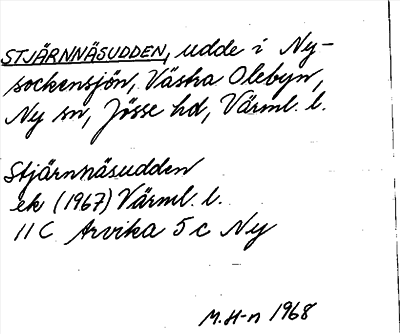 STJÄRNNÄSUDDEN, udde i Ny-
sockensjön, Västra Olebyn,
Ny sn, Jösse hd, Värml. l.
Stjärnnäsudden
ek (1967) Värml. l.
11 C Arvika 5 c Ny
M.H-n 1968